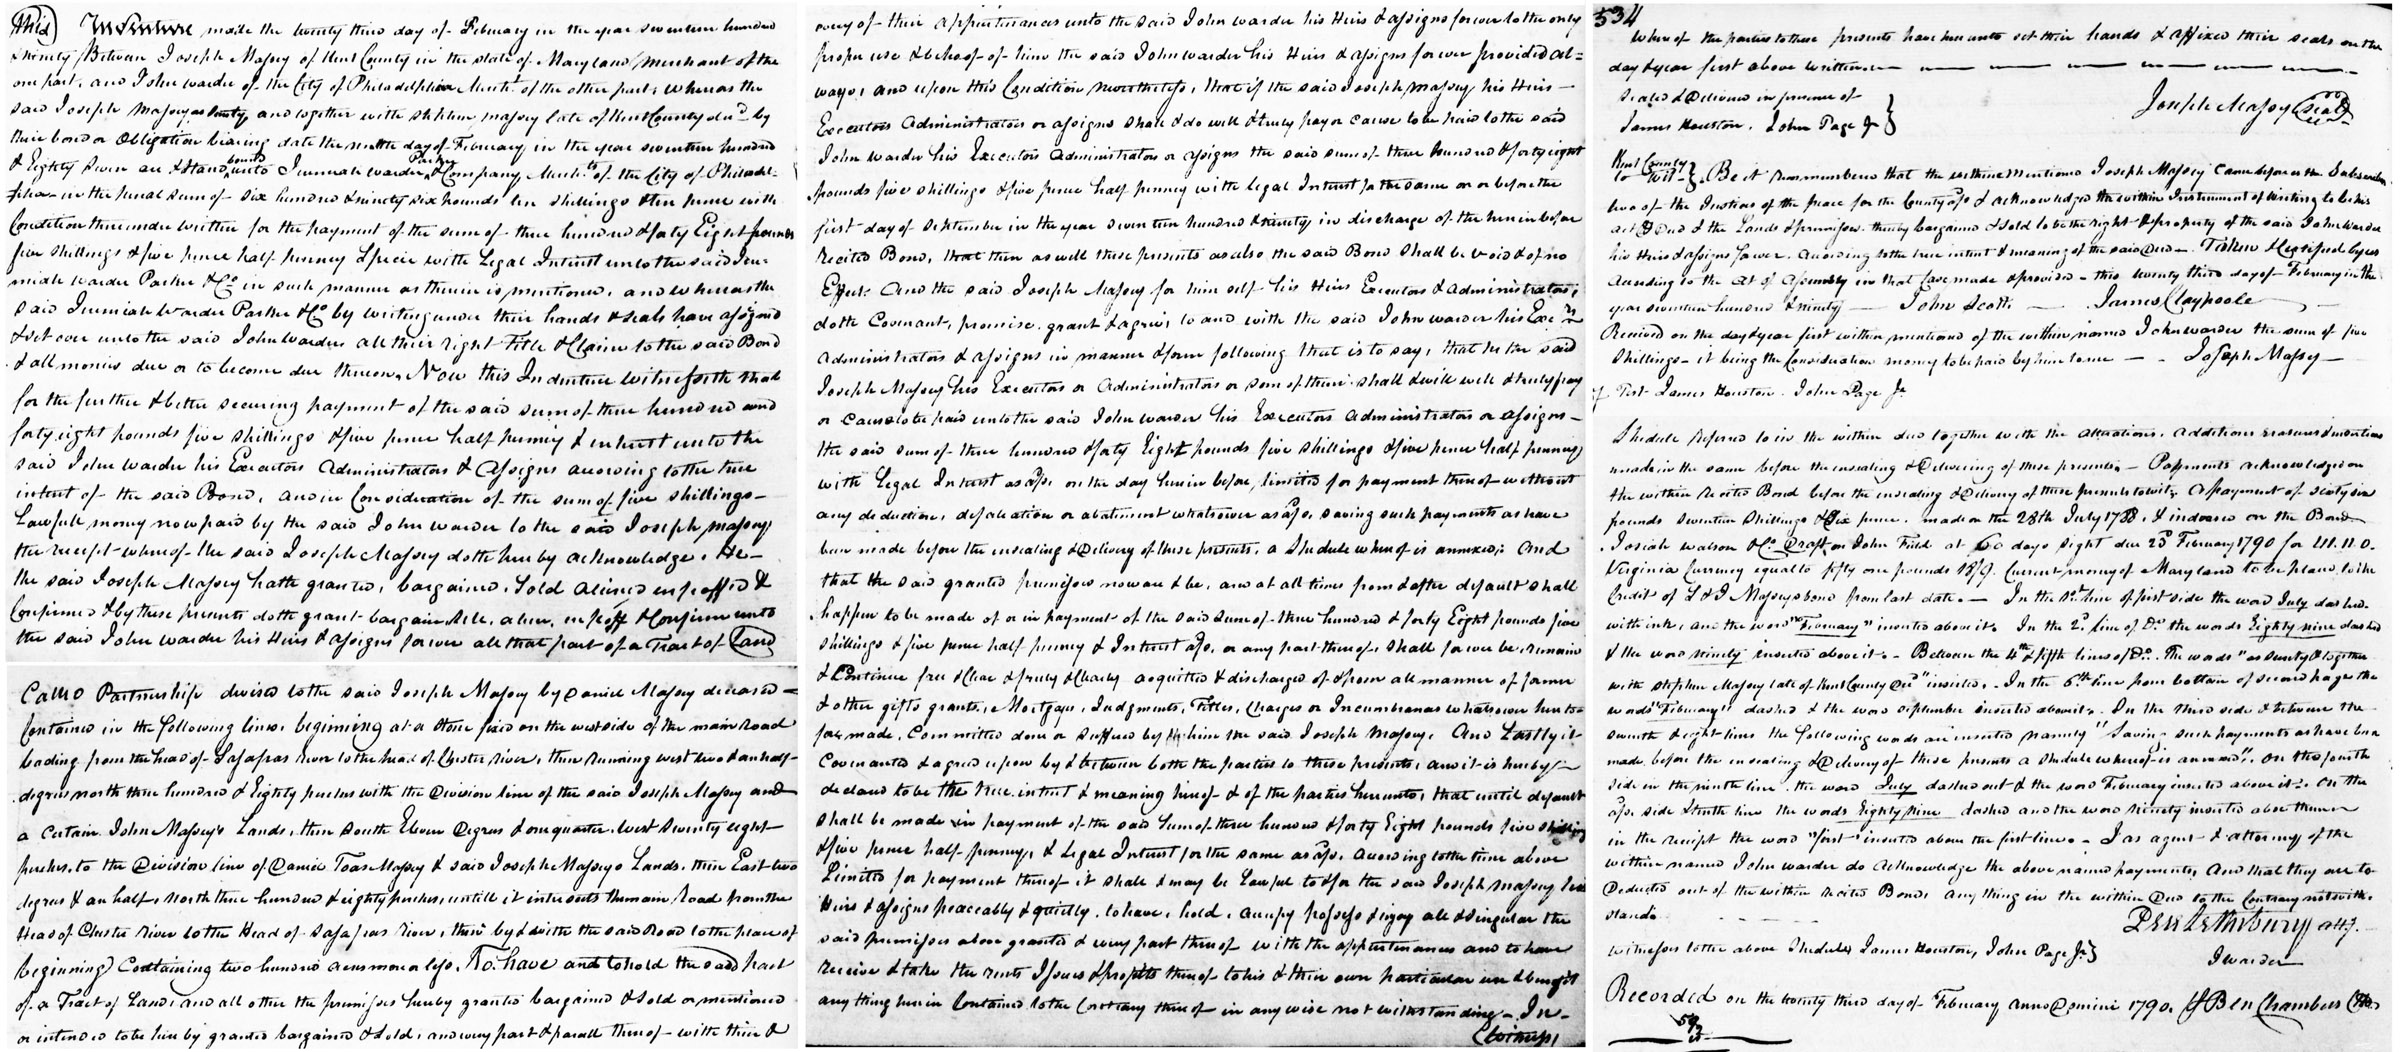 This Indenture made the twenty third day of February in the year seventeen hundred
& ninety Between Joseph Massey of Kent County in the state of Maryland Merchant of the
one part, and John warder of the City of Philadelphia Mercht. of the other part; whereas the
said Joseph Massey as surety and together with stephen massey late of Kent County decd. by
their bond or obligation bearing date the ninth day of February in the year seventeen hundred
& Eighty seven are & stand bound unto Jeremiah warder Parker & Company Merchts. of the City of Philadel-
phia in the penal sum of six hundred & ninety six pounds ten shillings & ten pence with
Condition thereunder written for the payment of the sum of three hundred & forty Eight pounds
five shillings & five pence half penney specie with Legal Interest unto the said Jere-
miah warder Parker & Co. in such manner as therein is mentioned, and whereas the
said Jeremiah Warder Parker & Co. by writing under their hands & seals have assigned
& set over unto the said John Warder all their right Title & Claim to the said Bond
& all monies due or to become due thereon. Now this Indenture witnesseth that
for the further & better securing payment of the said sum of three hundred and
forty eight pounds five shillings & five pence half penney & interest unto the
said John warder his Executors Administrators & Assigns according to the true
intent of the said Bond, and in Consideration of the sum of five shillings
Lawfull money now paid by the said John warder to the said Joseph massey
the receipt whereof the said Joseph Massey doth hereby acknowledge. He
the said Joseph Massey hath granted, bargained, sold aliened enfeoffed &
Confirmed & by these presents doth grant bargain sell, alien, enfeoff & Confirm unto
the said John warder his Heirs & assigns forever all that part of a Tract of Land
Called Partnership devised to the said Joseph Massey by Daniel Massey deceased
Contained in the following lines, beginning at a stone fixed on the west side of the main road
leading from the head of Sasafras river to the head of Chester river, then running west two & an half
degrees north three hundred & Eighty perches with the Division line of the said Joseph Massey and
a certain John Massey's Lands, then South Eleven degrees & one quarter west seventy eight
perches, to the Division line of Daniel Toas Massey & said Joseph Masseys Lands, then East two
degrees & an half, north three hundred & eighty perches, untill it intersects the main Road from the
Head of Chester River to the Head of Sasafras River, then by & with the said Road to the place of
beginning) Containing two hundred acres more or less. To have and to hold the said part
of a Tract of Land, and all other the premisses hereby granted bargained & sold or mentioned
or intended to be hereby granted bargained & sold, and every part & parcell thereof with their &
every of their appurtenances unto the said John warder his Heirs & assigns forever to the only
proper use & behoof of him the said John warder his Heirs & assigns forever provided al=
ways, and upon this Condition nevertheless, that if the said Joseph massey his Heirs
Executors Administrators or assigns shall & do well & truly pay or cause to be paid to the said
John warder his Executors Administrators or assigns the said sum of three hundred & forty eight
pounds five shillings & five pence half penney with Legal Interest for the same on or before the
first day of September in the year seventeen hundred & ninety in discharge of the herein before
recited Bond, that then as well these presents as also the said Bond shall be void & of no
Effect. And the said Joseph Massey for him self his Heirs Executors & administrators,
doth Covenant, promise, grant & agree, to and with the said John warder his Exers.
Administrators & assigns in manner & form following that is to say, that he the said
Joseph Massey his Executors or Administrators or some of them shall & will well & truly pay
or cause to be paid unto the said John warder his Executors Administrators or assigns
the said sum of three hundred & forty Eight pounds five shillings & five pence half penney
with Legal Interest as afs. on the day herein before, limited for payment thereof without
any deduction, defalcation or abatement whatsoever as afs. saving such payments as have
been made before the ensealing & Delivery of these presents, a shedule whereof is annexed; and
that the said granted premisses now are & be, and at all times from & after default shall
happen to be made of or in payment of the said sum of three hundred & forty Eight pounds five
shillings & five pence half penney & Interest afs. or any part thereof, shall forever be, remain
& Continue free & clear & freely & clearly acquitted & discharged of & from all manner of former
& other gifts grants, Mortgages, Judgments, Titles, Charges or Incumbrances whatsoever hereto-
fore made, Committed done or suffered by him the said Joseph Massey. And Lastly it
Covenanted & agreed upon by & between both the parties to these presents, and it is hereby
declared to be the true intent & meaning hereof & of the parties hereunto, that until default
shall be made in payment of the said sum of three hundred & forty Eight pounds five shilling
& five pence half penney, & Legal Interest for the same as afs. according to the time above
Limited for payment thereof it shall & may be Lawful to & for the said Joseph Massey his
Heirs & assigns peaceably & quietly, to have, hold, occupy possess & enjoy all & singular the
said premisses above granted & every part thereof with the appurtenances and to have
receive & take the rents Issues & profits thereof to his & their own particular use & benefit
any thing herein Contained to the Contrary thereof in any wise not withstanding. In
witness,
534
whereof the parties to these presents have hereunto set their hands & affixed their seals on the
day & year first above written
Sealed & Delivered in presence of
James Houston. John Page Jr }
Joseph Massey seal
Kent County
to wit }. Be it remembered that the within mentioned Joseph Massey Came before us the Subscribers
two of the Justices of the peace for the County afs. & acknowledged the within Instrument of writing to be his
act & Deed & the Lands & premisses thereby bargained & sold to be the right & property of the said John Warder
his Heirs & assigns forever, according to the true intent & meaning of the said Deed. Taken & Certified by us
according to the Act of Assembly in that Case made & provided this twenty third day of February in the
year seventeen hundred & ninety John Scott James Claypoole
Received on the day & year first within mentioned of the within named John warder the sum of five
shillings it being the Consideration money to be paid by him to me Joseph Massey
Test James Houston. John Page Jr.
Shedule referred to in the within deed together with the alterations, additions erasures & insertions
made in the same before the ensealing & Delivering of these presents. Payments acknowledged on
the within recited Bond before the ensealing & Delivery of these presents to wit; a payment of sixty six
pounds seventeen shillings & six pence, made on the 28th July 1788, & indorsed on the Bond
Josiah Watson & Co. Draft on John Field at 60 days sight due 23 February 1790 for 41.11.0.
Virginia Currency equal to fifty one pounds 18/9. Current money of Maryland to be placed to the
Credit of S & J Masseys bond from last date. In the 1st. line of first side the word July dashed
with ink, and the word "February" inserted above it. In the 2d. line of Do. the words Eighty nine dashed
& the word ninety inserted above it. Between the 4th & fifth lines of Do. the words "as surety & together
with stephen Massey late of Kent County Decd" inserted. In the 6th line from bottom of second page the
word "February" dashed & the word september inserted above it. In the third side & between the
seventh & eight lines the following words are inserted namely "saving such payments as have been
made before the ensealing & Delivery of these presents a shedule whereof is annexed". On the fourth
side in the ninth line the word July dashed out & the word February inserted above it. On the
afs. side & tenth line the words Eighty nine dashed and the word ninety inserted above them
in the receipt the word "first" inserted above the first line. I as agent & attorney of the
within named John warder do acknowledge the above named payments, and that they are to
Deducted out of the within recited Bond, any thing in the within Deed to the Contrary notwith-
standg.
Peregr. Lethrbury atty.
witnesses to the above Shedule James Houston, John Page Jr }
J warder
Recorded on the twenty third day of February anno Domini 1790. Ben Chambers Clk